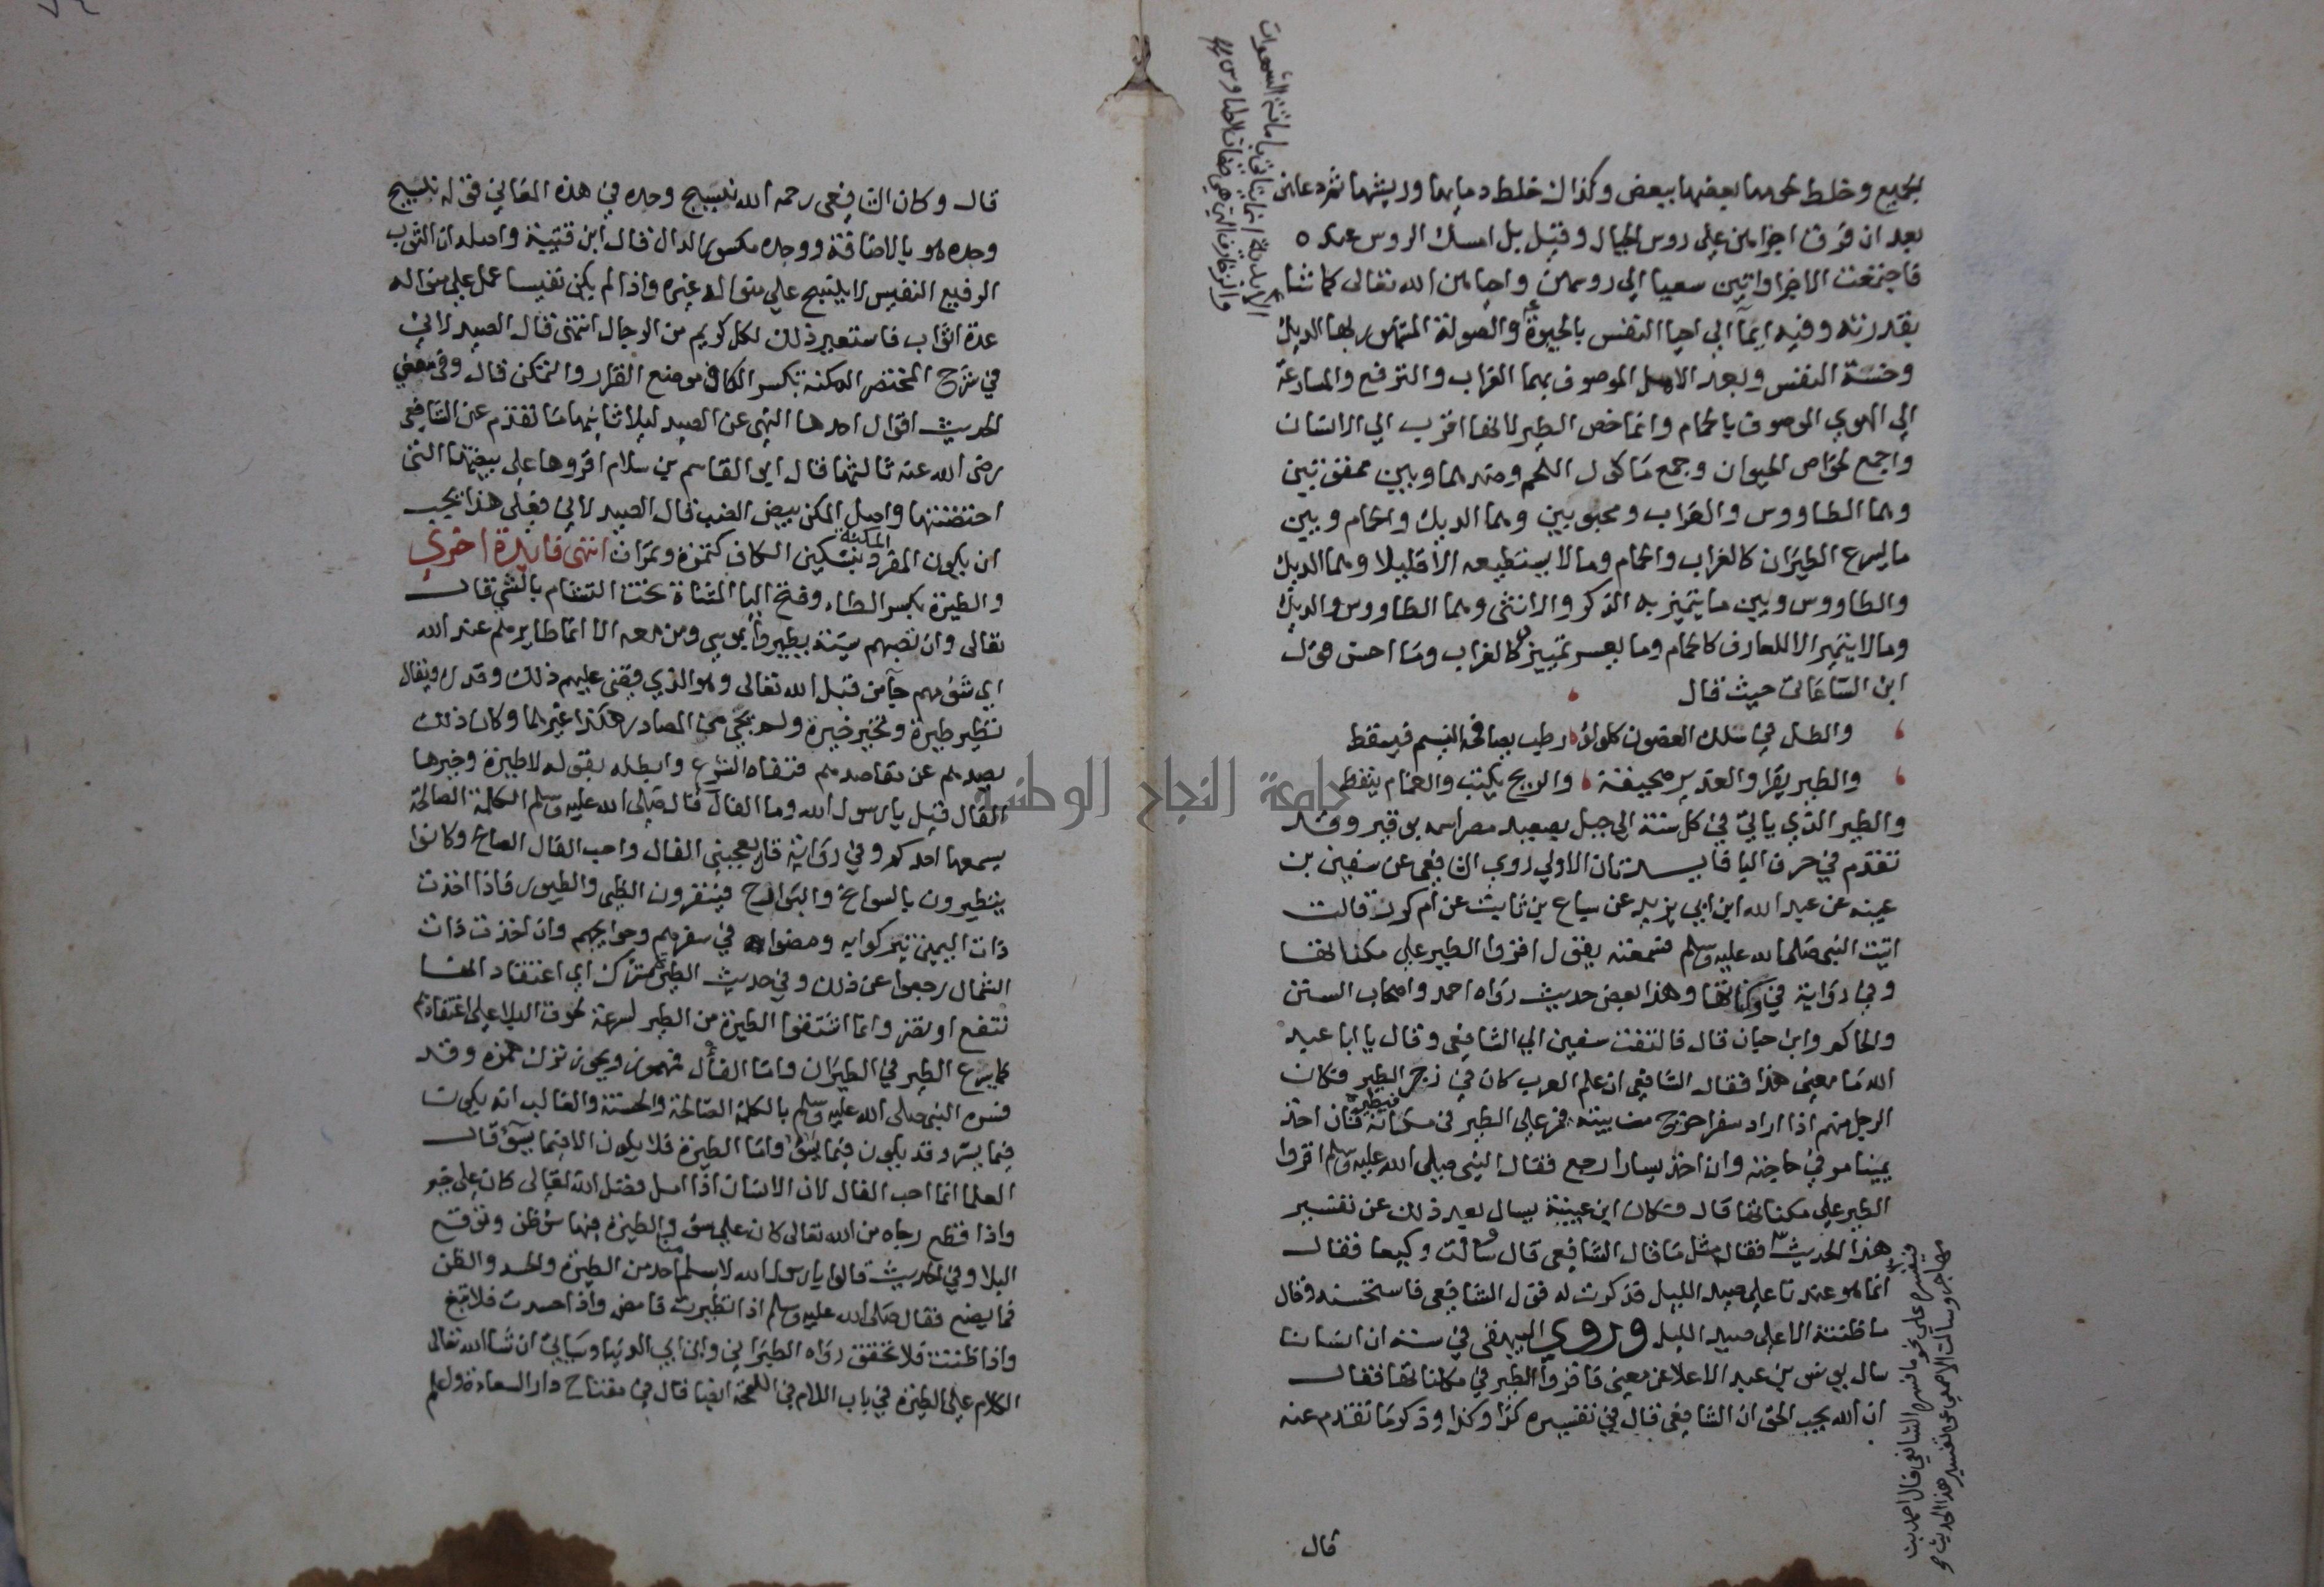 الجميع وخلط لحمها بعضها ببعض وكذلك خلط دماءها وريشها ثم دعاهن
بعد ان فرق اجزاءهن على روس الجبال وقيل بل امسك الروس عنده
فاجتمعت الاجزا واتين سعيا الى روسهن واحياهن الله تعالى كما شاء
بقدرته وفيه ايماء الى احيا النفس بالحيوة والصولة المشهور بها الديك
وخسة النفس وبعد الامل الموصوف بهما الغراب والترفع والمسارعة
الى الهوى الموصوف بالحمام وانما خص الطير لانها اقرب الى الانسان
واجمع لخواص الحيوان وجمع ماكول اللحم وضدهما وبين ممقوتين
وهما الطاووس والغراب ومحبوبين وهما الديك والحمام وبين
ما يسرع الطيران كالغراب والحمام وما لا يستطيعه الا قليلا وهما الديك
والطاووس وبين ما يتميز به الذكر والانثى وهما الطاووس والديك
وما لا يتميز الا للعارف كالحمام وما يعسر تمييزه كالغراب وما احسن قول
ابن الساعاتى حيث قال
والطل في سلك الغصون كلولؤ رطب يصافحه النسيم فيسقط
والطير يقرا والغدير صحيفة والريح يكتب والغمام ينقط
والطير الذي ياتي في كل سنة الى جبل بصعيد مصر اسمه بوقير وقد
تقدم في حرف البا فايدتان الاولي روى الشافعى عن سفين بن
عيينه عن عبد الله ابن ابي يزيد عن سباع بن ثابت عن ام كرز قالت
اتيت النبى صلى الله عليه وسلم فسمعته يقول اقروا الطير على مكناتها
وفي رواية في وكناتها وهذا بعض حديث رواه احمد واصحاب السنن
والحاكم وابن حبان قال فالتفت سفين الى الشافعى وقال يا ابا عبد
الله ما معنى هذا فقال الشافعى ان علم العرب كان في زجر الطير فكان
الرجل منهم اذا اراد سفرا خرج من بيته فمر على الطير في مكانه فيطيره فان اخذ
يمينا مر في حاجته وان اخذ يسارا رجع فقال النبى صلى الله عليه وسلم اقروا
الطير على مكناتها قال فكان ابن عيينة يسال بعد ذلك عن تفسير
هذا الحديث فقال مثل ما قال الشافعى قال وسالت وكيعا فقال
انما هو عندنا على صيد الليل فذكرت له قول الشافعى فاستحسنه وقال
ما ظننته الا على صيد الليل وروي البيهقى في سننه ان انسانا
سال يونس بن عبد الاعلا عن معنى فاقروا الطير في مكاناتها فقال
ان الله يحب الحق ان الشافعى قال في تفسيره كذا وكذا وذكر ما تقدم عنه
قال
فيفسره على نحو ما فسره الشافعى قال احمد بن
مهاجر وسالت الاصمعى عن تفسير هذا الحديث
قال وكان الشافعى رحمه الله نسيج وحده في هذه المعاني قوله نسيج
وحده هو بالاضافة ووحده مكسور الدال قال ابن قتيبة واصله ان الثوب
الرفيع النفيس لا ينسج على منواله غيره واذا لم يكن نفيسا عمل على منواله
عدة اثواب فاستعير ذلك لكل كريم من الرجال انتهى قال الصيدلاني
في شرح المختصر المكنة بكسر الكاف موضع القرار والتمكن قال وفي معنى
الحديث اقوال احدها النهى عن الصيد ليلا ثانيها ما تقدم عن الشافعى
رضى الله عنه ثالثها قال ابو القاسم بن سلام اقروها على بيضها التى
احتضنتها واصل المكن بيض الضب قال الصيدلاني فعلى هذا يجب
ان يكون المفرد المكنة بتسكين الكاف كتمرة وتمرات انتهى فايدة اخري
والطيرة بكسر الطاء وفتح اليا المثناة تحت التشاوم بالشي قال
تعالى وان تصبهم سيئة يطيروا بموسى ومن معه الا انما طايرهم عند الله
اي شؤمهم جآ من قبل الله تعالى وهو الذي قضى عليهم ذلك وقدره ويقال
تطير طيرة وتخير خيرة ولم يجي من المصادر هكذا غيرهما وكان ذلك
يصدهم عن مقاصدهم فنفاه الشرع وابطله بقوله لا طيرة وخيرها
الفال قيل يا رسول الله وما الفال قال صلى الله عليه وسلم الكلمة الصالحة
يسمعها احدكم وفي رواية قال يعجبني الفال واحب الفال الصالح وكانوا
يتطيرون بالسوانح والبوارح فينفرون الظبى والطيور فاذا اخذت
ذات اليمين تبركوا به ومضوا في سفرهم وحوايجهم وان اخذت ذات
الشمال رجعوا عن ذلك وفي حديث الطيرة شرك اي اعتقاد انها
تنفع او تضر وانما اشتقوا الطيرة من الطير لسرعة لحوق البلا على اعتقادهم
كما يسرع الطير في الطيران واما الفأل فمهموز ويجوز ترك همزه وقد
فسره النبى صلى الله عليه وسلم بالكلمة الصالحة والحسنة والغالب انه يكون
فيما يسر وقد يكون فيما يسؤ واما الطيرة فلا يكون الا فيما يسؤ قال
العلما انما احب الفال لان الانسان اذا امل فضل الله تعالى كان على خير
واذا قطع رجاه من الله تعالى كان على سؤ والطيرة فيها سؤ ظن وتوقع
البلا وفي الحديث قالوا يا رسول الله لا يسلم منا احد من الطيرة والحسد والظن
فما يصنع فقال صلى الله عليه وسلم اذا تطيرت فامض واذا حسدت فلا تبغ
واذا ظننت فلا تحقق رواه الطبراني وابن ابي الدنيا وسياتي ان شا الله تعالى
الكلام على الطيرة في باب اللام في اللقحة ايضا قال في مفتاح دار السعادة واعلم
جامعة النجاح الوطنية